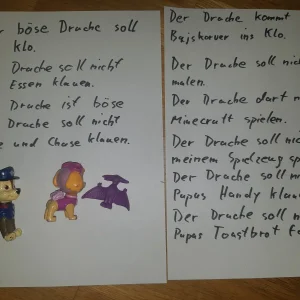 r böse Drache soll
Klo.
Drache soll nicht
Essen klauen.
Drache ist böse
Drache soll nicht
e und Chase klauen.
Der Drache kommt
Bajskorver ins Klo.
Der Drache soll nic
malen.
Der Drache darf n
Minecraft spielen.
Der Drache soll nic
meinem Spielzeug sp
Der Drache soll n
Papas Handy klau
Der Drache soll n
Papas Toastbrot